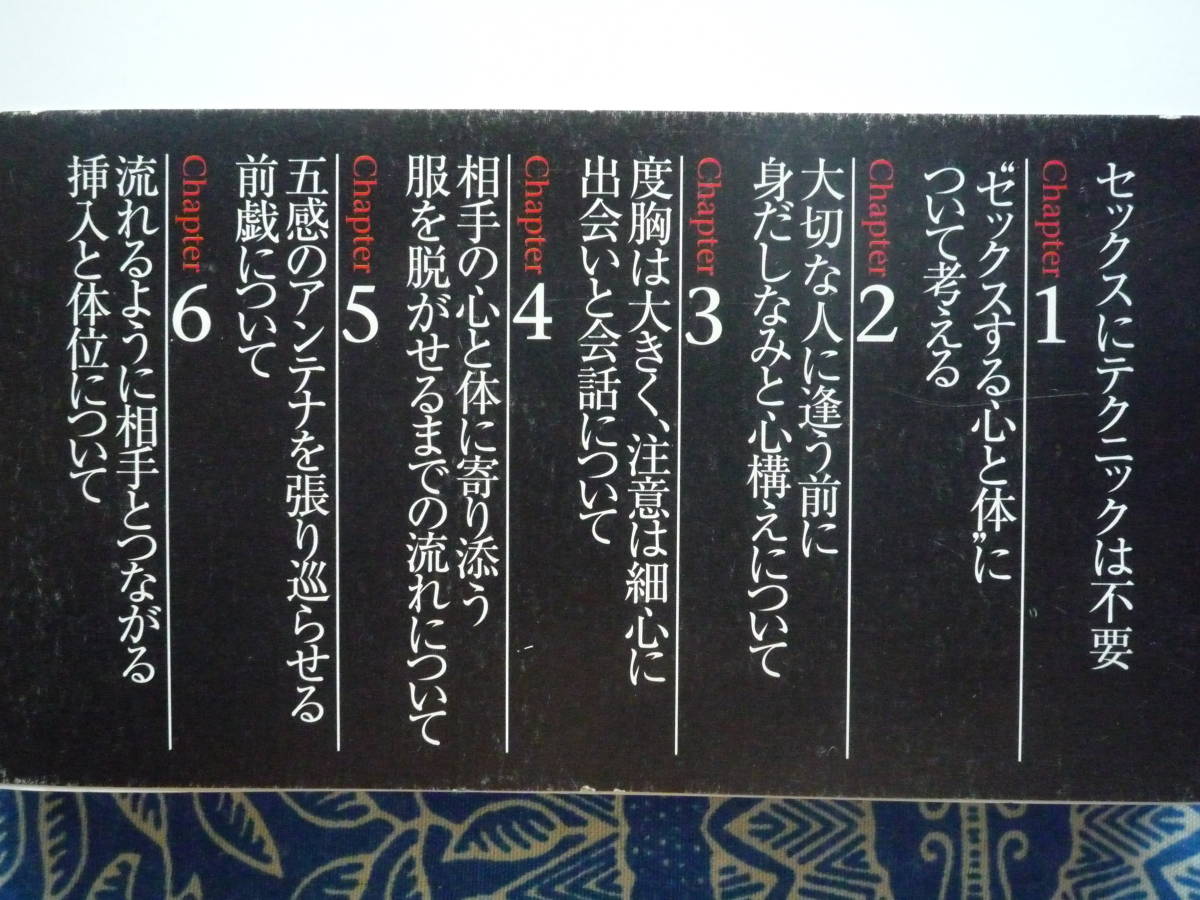 セックスにテクニックは不要
Chapter 1
“ゼックスする心と体”に
ついて考える
Chapter 2
大切な人に逢う前に
身だしなみと心構えについて
Chapter 3
度胸は大きく、注意は細心に
出会いと会話について
Chapter 4
相手の心と体に寄り添う
服を脱がせるまでの流れについて
Chapter 5
五感のアンテナを張り巡らせる
前戯について
Chapter 6
流れるように相手とつながる
挿入と体位について